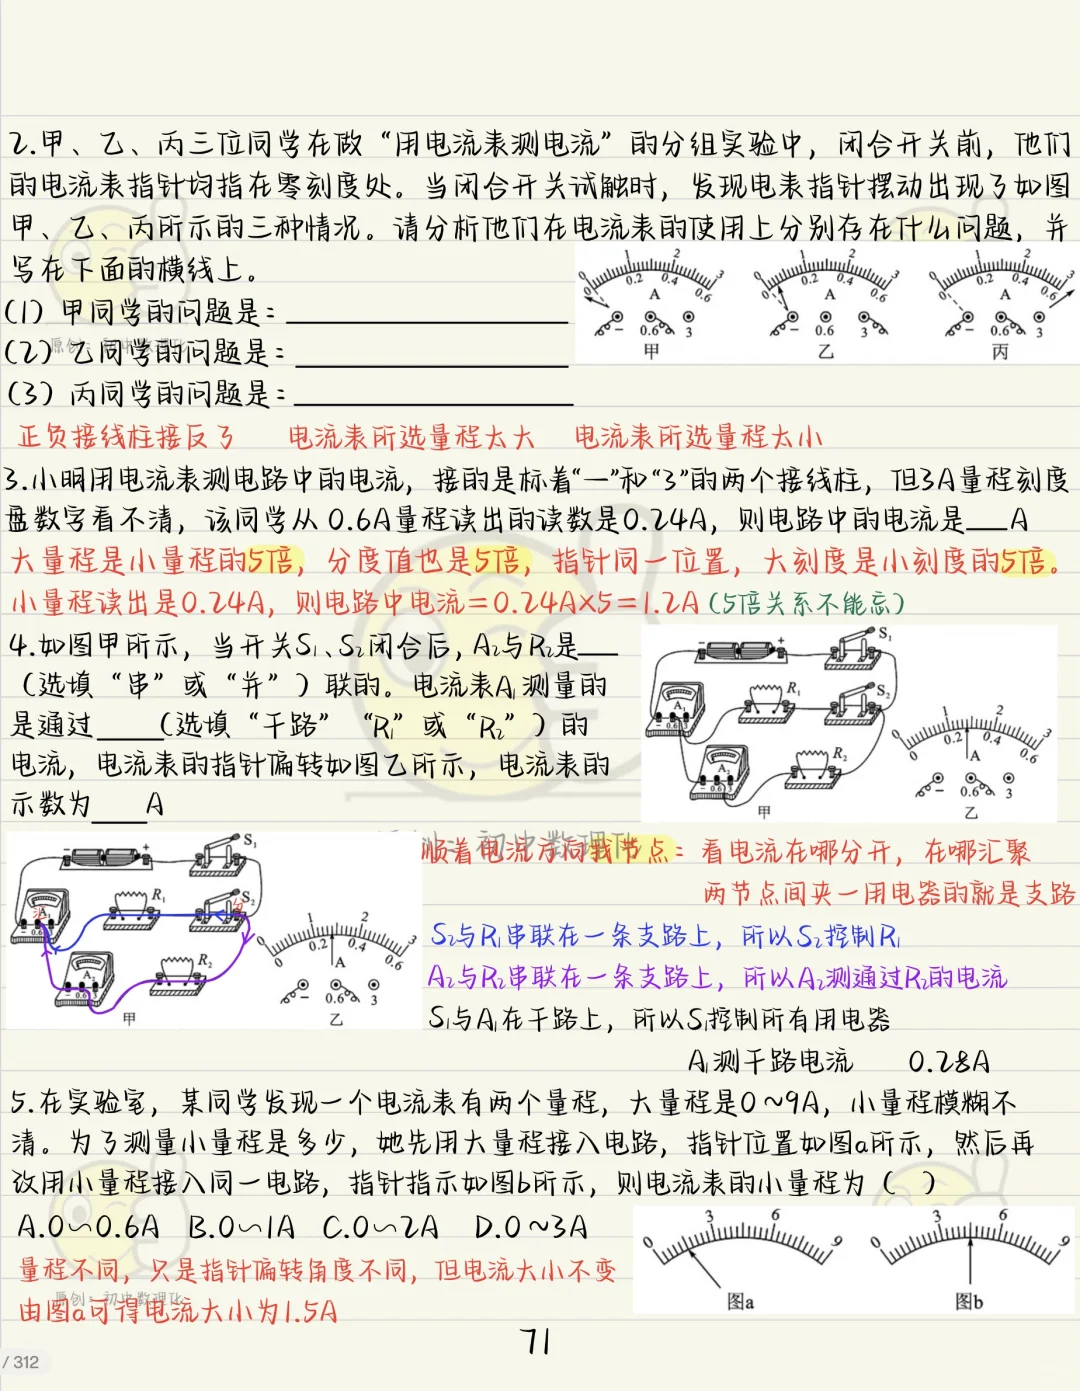 2.甲、乙、丙三位同学在做“用电流表测电流”的分组实验中，闭合开关前，他们
的电流表指针均指在零刻度处。当闭合开关试触时，发现电表指针摆动出现了如图
甲、乙、丙所示的三种情况。请分析他们在电流表的使用上分别存在什么问题，并
写在下面的横线上。
(1)甲同学的问题是：
(2)乙同学的问题是：
(3)丙同学的问题是：
0 1 2 3
0 0.2 0.4 0.6
A
- 0.6 3
甲
0 1 2 3
0 0.2 0.4 0.6
A
- 0.6 3
乙
0 1 2 3
0 0.2 0.4 0.6
A
- 0.6 3
丙
正负接线柱接反了 电流表所选量程太大 电流表所选量程太小
3.小明用电流表测电路中的电流，接的是标着“一”和“3”的两个接线柱，但3A量程刻度
盘数字看不清，该同学从0.6A量程读出的读数是0.24A，则电路中的电流是___A
大量程是小量程的5倍，分度值也是5倍，指针同一位置，大刻度是小刻度的5倍。
小量程读出是0.24A，则电路中电流=0.24A×5=1.2A(5倍关系不能忘)
4.如图甲所示，当开关S₁、S₂闭合后，A₂与R₂是___
（选填“串”或“并”）联的。电流表A₁测量的
是通过____(选填“干路”“R₁”或“R₂”)的
电流，电流表的指针偏转如图乙所示，电流表的
示数为____A
- + S₁
R₁ S₂
A₁
A₂ R₂
甲
0 1 2 3
0 0.2 0.4 0.6
A
- 0.6 3
乙
原创：初中数理化
顺着电流方向找节点：看电流在哪分开，在哪汇聚
两节点间夹一用电器的就是支路
S₂与R₁串联在一条支路上，所以S₂控制R₁
A₂与R₂串联在一条支路上，所以A₂测通过R₂的电流
S₁与A₁在干路上，所以S₁控制所有用电器
A₁测干路电流 0.28A
- + S₁
R₁ S₂
A₁
A₂ R₂
甲
0 1 2 3
0 0.2 0.4 0.6
A
- 0.6 3
乙
5.在实验室，某同学发现一个电流表有两个量程，大量程是0~9A，小量程模糊不
清。为了测量小量程是多少，她先用大量程接入电路，指针位置如图a所示，然后再
改用小量程接入同一电路，指针指示如图b所示，则电流表的小量程为（ ）
A.0~0.6A B.0~1A C.0~2A D.0~3A
0 3 6 9
图a
0 3 6 9
图b
量程不同，只是指针偏转角度不同，但电流大小不变
原创：初中数理化
由图a可得电流大小为1.5A
71
/ 312